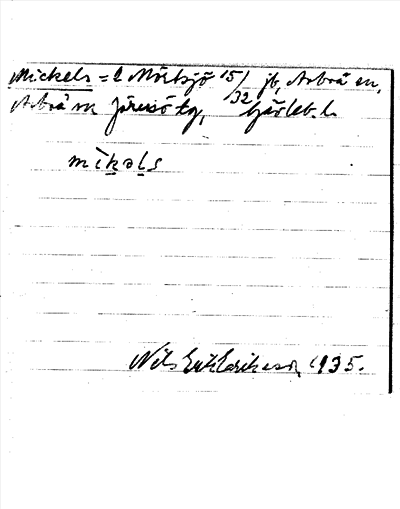 Mickels = 2 Mörtsjö 15/32 jb, Arbrå sn,
Arbrå m Järvsö tg, Gävleb. l.
mikəls
Nils Erik Eriksson, 1935.